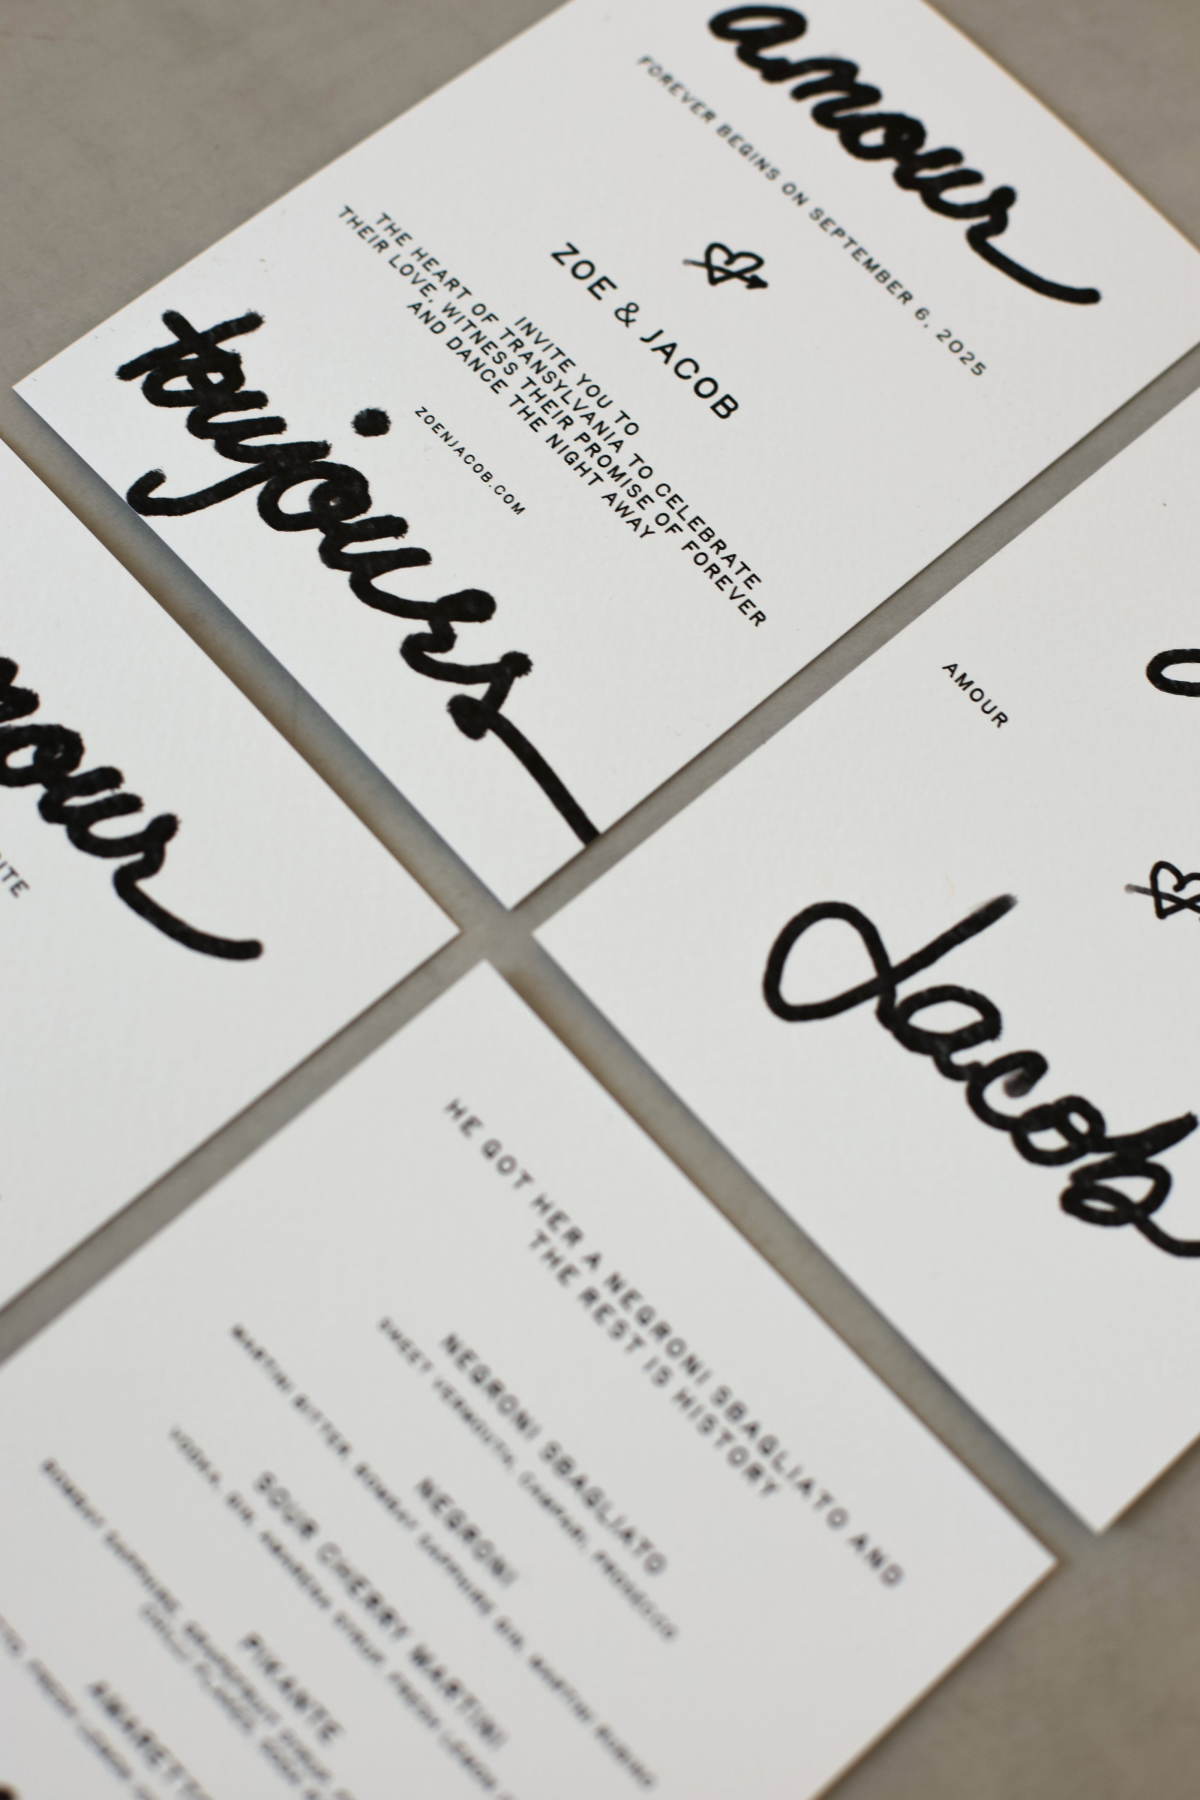 amour
FOREVER BEGINS ON SEPTEMBER 6, 2025
ZOE & JACOB
INVITE YOU TO
THE HEART OF TRANSYLVANIA TO CELEBRATE
THEIR LOVE, WITNESS THEIR PROMISE OF FOREVER
AND DANCE THE NIGHT AWAY
ZOENJACOB.COM
toujours
AMOUR
Jacob
mour
HE GOT HER A NEGRONI SBAGLIATO AND
THE REST IS HISTORY
NEGRONI SBAGLIATO
SWEET VERMOUTH, CAMPARI, PROSECCO
NEGRONI
MARTINI BITTER, BOMBAY SAPPHIRE GIN, MARTINI RUBINO
SOUR CHERRY MARTINI
PIKANTE